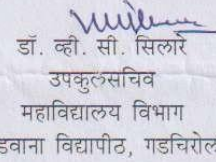 डॉ. व्ही. सी. सिलारे
उपकुलसचिव
महाविद्यालय विभाग
डवाना विद्यापीठ, गडचिरोल